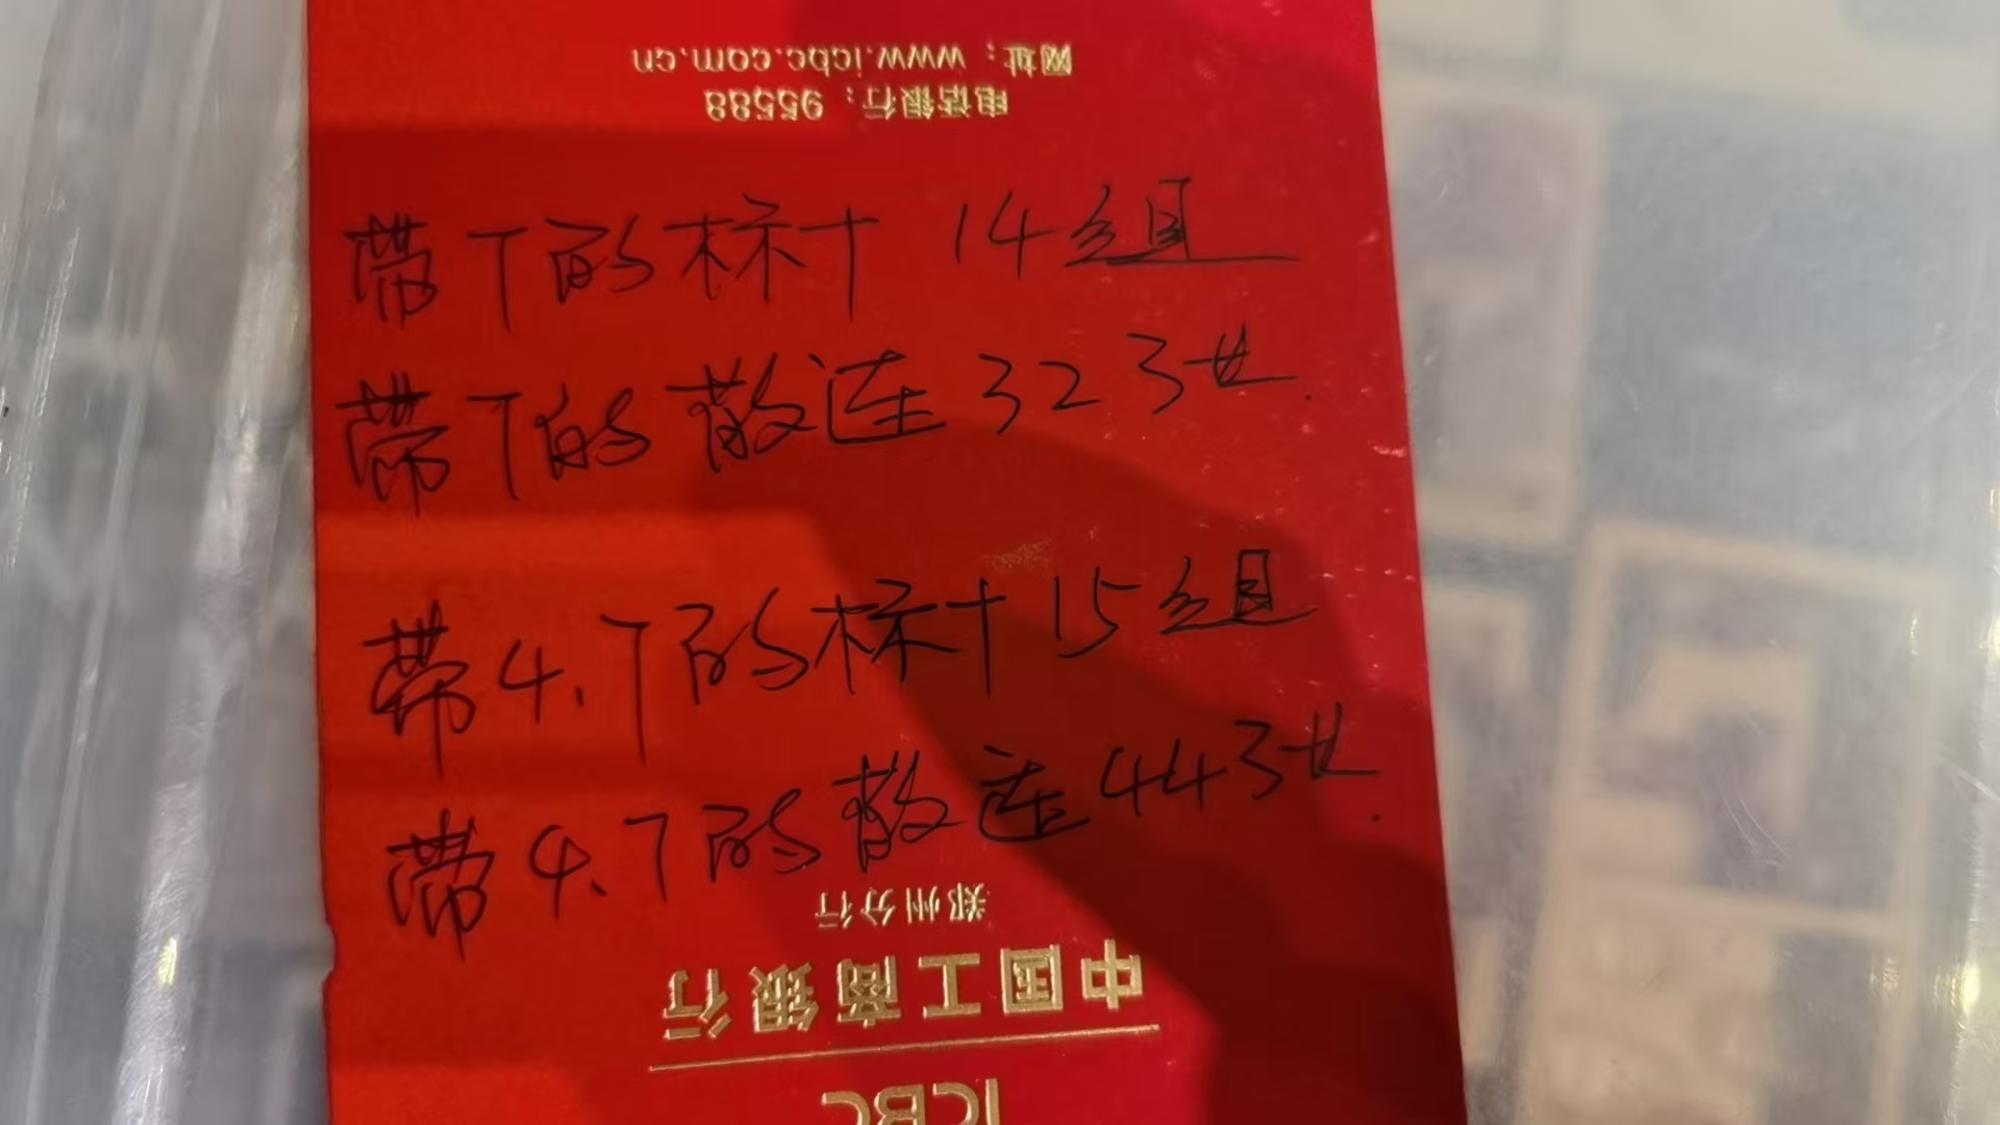 网址：www.icbc.com.cn
电话银行：95588
带T的标十 14组
带T的散连 323女.
带4.T的标十 15组
带4.T的散连 443女.
郑州分行
中国工商银行
ICBC